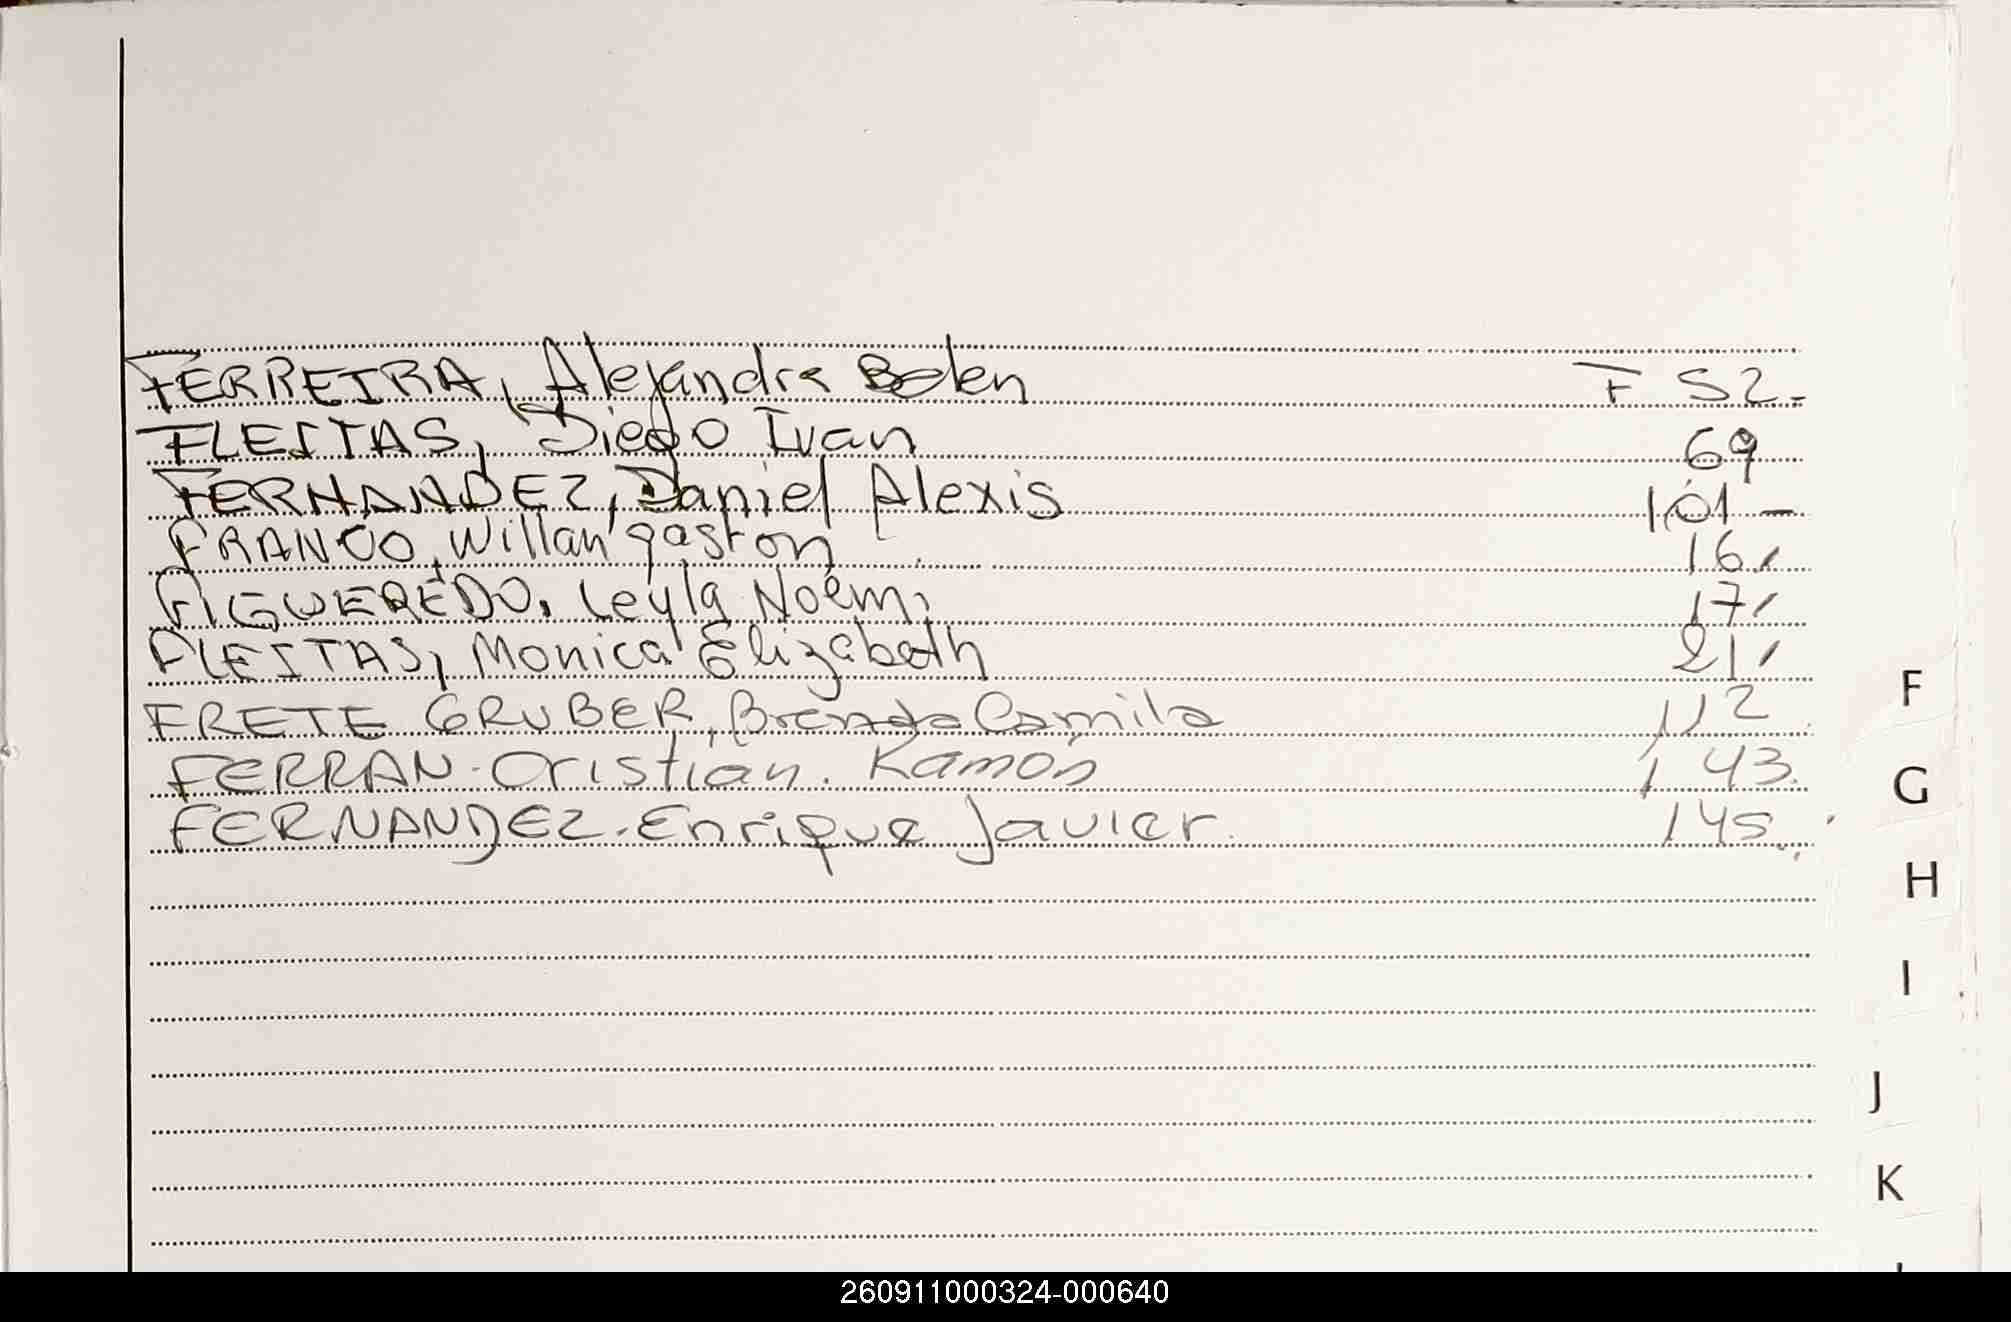 FERREIRA, Alejandra Belen F 52-
FLEITAS, Diego Ivan 69
FERNANDEZ, Daniel Alexis 101 -
FRANCO, Willan gaston 16,
FIGUEREDO, Leyla Noemi 17,
FLEITAS, Monica Elizabeth 21,
FRETE GRUBER, Brenda Camila 112
FERRAN. Cristian. Ramón 143.
FERNANDEZ. Enrique Javier. 145
F
G
H
I
J
K
260911000324-000640